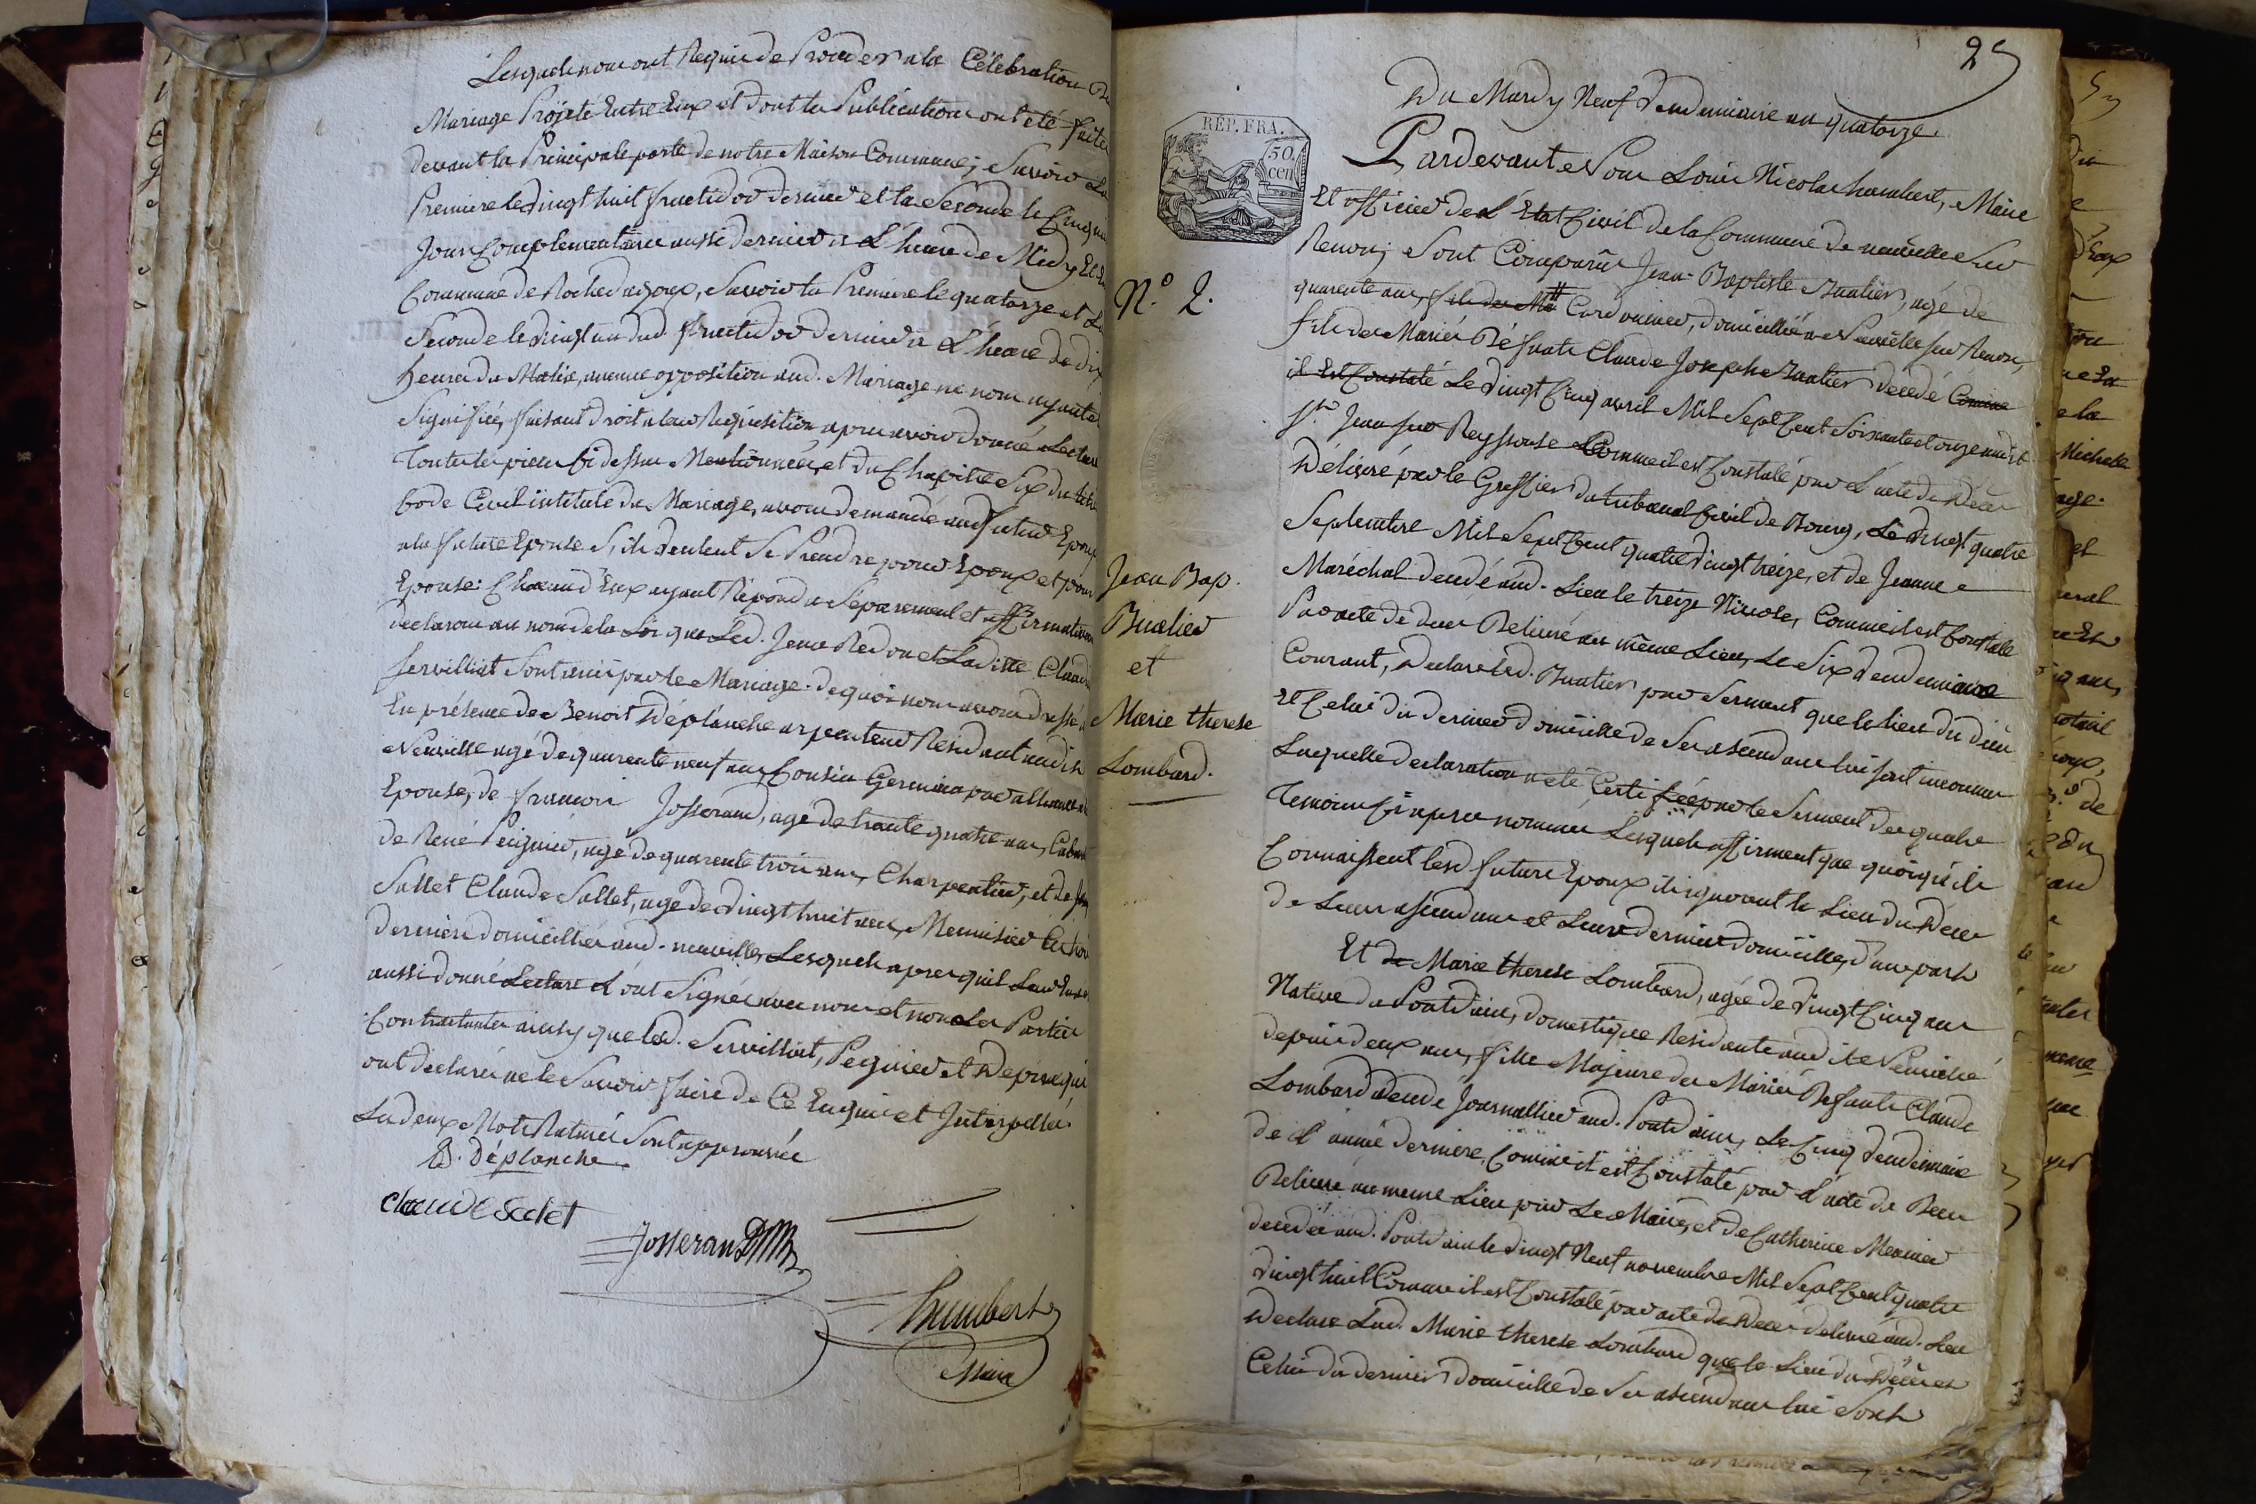 Lesquels nous ont Requis de Proceder a la Célébration Du
Mariage Projeté Entre Eux et dont les Publications ont été faites
devant la Principale porte de notre Maison Commune; Savoir La
Premiere le vingt huit fructidor dernier et la Seconde le Cinquie
Jour Complementaire aussi dernier a L'heure de Midy Et En
Commune de , Savoir la Premiere le quatorze et La
Seconde le vingt un dud fructidor dernier a L'heure de dix
heures du Matin, aucune opposition aud. Mariage ne nous ayant été
Signifiée, faisant droit a leur Requisition, apres avoir donné Lecture
Toutes les pieces Ci dessus Mentionnées, et du Chapitre Six du titre
Code Civil intitulé du Mariage, avons demandé aud futur Epoux
a la future Epouse S'ils veulent Se Prendre pour Epoux et pour
Epouse: Chacun d'Eux ayant Répondu Séparement et affirmativem
declarons au nom de la Loi que Led. Jean Redon et Laditte Claudi
Servilliat Sont unis par le Mariage. de quoi nous avons dressé a
En présence de Benoit Déplanche arpenteur Résidant audit
Neuville agé de quarente neuf ans Cousin Germain par alliance de
Epouse, de françois Josserand, agé de trante quatre ans, Cabar
de René Peignier, agé de quarente trois ans, Charpentier, et de
Sallet Claude Sallet, agé de vingt huit ans, Menuisier
derniers domiciliés aud. neuville, Lesquels apres quil Leur En a
aussi donné Lecture L'ont Signés avec nous et non Les Parties
Contractantes ainsy que led. Servilliat, Pegnier et qui
ont declarés ne le Savoir faire de Ce Enquis et Interpellés.
Les deux Mots Raturés Sont approuvés
B. Déplanche
claude salet
Josserand
humbert
Maire
25
Du Mardy Neuf Vendemiaire an quatorze.
RÉP. FRA.
50.
cen
Pardevant Nous Louis Nicolas humbert, Maire
Et officier de L'Etat Civil de la Commune de neuville Sur
Renon; Sont Comparus Jean-Baptiste Buatier, agé de
N.º 2.
quarente ans, fils des Ma Cordonnier, domicillié a Neuville sur Renon,
fils des Mariés Défunts Claude Joseph Buatier décedé Comme
il Est Constaté Le vingt Cinq avril Mil Sept Cent Soixante et onze audit
St. Jean sur Reyssouse Comme il est Constaté par L'acte de Décès
Délivré par le Greffier du tribunal Civil de Bourg, Le vingt quatre
Septembre Mil Sept Cent quatre vingt treize, et de Jeanne
Jean Bap.
Buatier
et
Marie therese
Lombard.
Maréchal decedé aud. Lieu le treize Nivose, Comme il est Constaté
Par acte de deces Delivré au même Lieu, Le Six Vendemiaire
Courant, Declare led. Buatier par Serment que le lieu du décès
Et Celui du dernier domicille de Ses ascendans lui sont inconnus
Laquelle declaration a été Certifiée par le Serment des quatre
Temoins Ci apres nommés Lesquels affirment que quoiqu'ils
Connaissent lesd future Epoux ils ignorent le Lieu du Décès
de Leurs ascendans et Leurs dernier domicille, d'une part
Et de Marie therese Lombard, agée de vingt Cinq ans
Native du Pontdain, domestique Residante audite Neuville
depuis deux ans, fille Majeure des Mariés Défunts Claude
Lombard decedé Journallier aud. Pontdain, Le Cinq Vendemiaire
de L'année derniere, Comme il est Constaté par L'acte de Deces
Delivré au meme Lieu par Le Maire, et de Catherine Meunier
decedée aud. Pontdain le vingt Neuf novembre Mil Sept Cent quatre
vingt huit Comme il est Constaté par acte de Deces delivré aud. Lieu
Declare Lad. Marie therese Lombard que le Lieu du Décès et
Celui du dernier domicille de Ses ascendans lui Sont